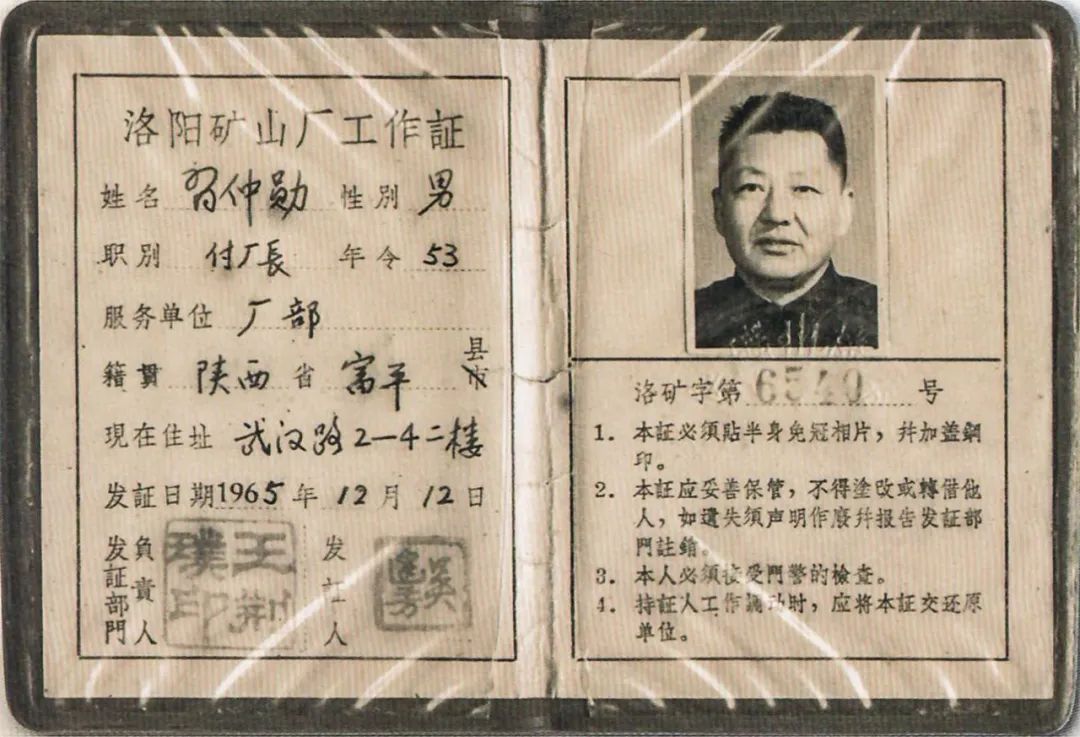 洛阳矿山厂工作証
姓名 习仲勋 性別 男
职別 付厂長 年令 53
服务单位 厂部
籍貫 陕西 省 富平 县市
現在住址 武汉路2—4二楼
发証日期1965年12月12日
发証部門
負責人
王荆璞印
发証人
洛矿字第6540号
1. 本証必須貼半身免冠相片，幷加盖鋼
印。
2. 本証应妥善保管，不得塗改或轉借他
人，如遺失須声明作廢幷报告发証部
門註銷。
3. 本人必須接受門警的檢查。
4. 持証人工作調动时，应將本証交还原
单位。